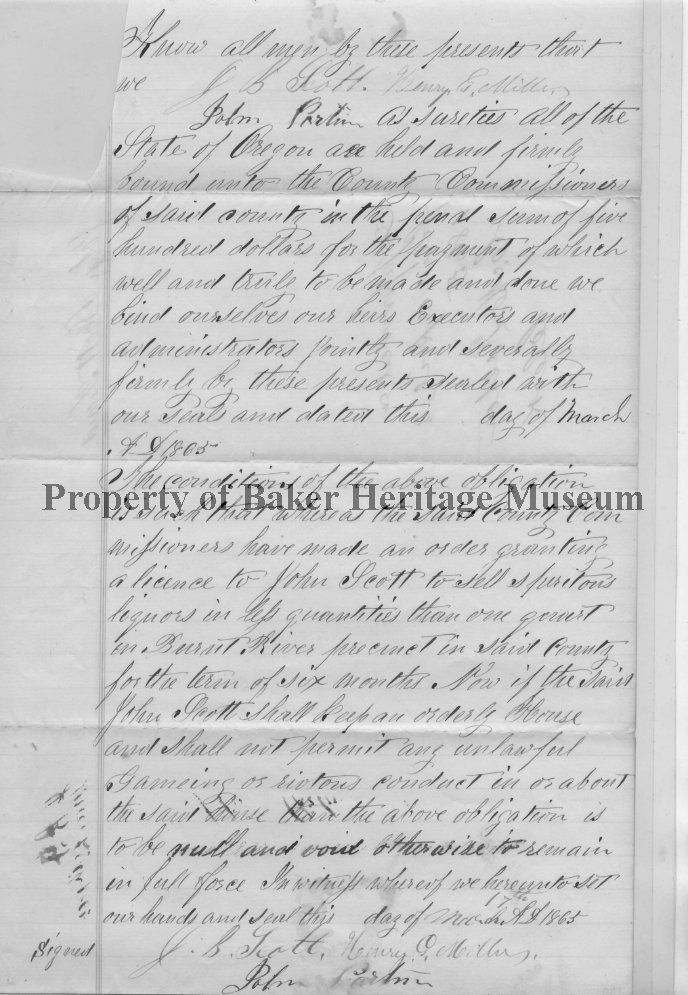 Know all men by these presents that
we J B Scott. Henry E. Miller,
John Partin as sureties all of the
State of Oregon are held and firmly
bound unto the County Commissioners
of said county in the penal sum of five
hundred dollars for the payment of which
well and truly to be made and done we
bind ourselves our heirs Executors and
administrators jointly and severally
firmly by these presents sealed with
our seals and dated this day of March
A D 1865
The condition of the above obligation
Property of Baker Heritage Museum
is such that whereas the said County Com
missioners have made an order granting
a licence to John Scott to sell spiritous
liquors in less quantities than one quart
in Burnt River precinct in said County
for the term of six months Now if the said
John Scott shall keep an orderly House
and shall not permit any unlawful
Gameing or riotous conduct in or about
the said House then the above obligation is
to be null and void otherwise to remain
in full force In witness whereof we hereunto set
our hands and seal this 7th day of March A D 1865
Signed J. B. Scott, Henry E. Miller,
John Partin